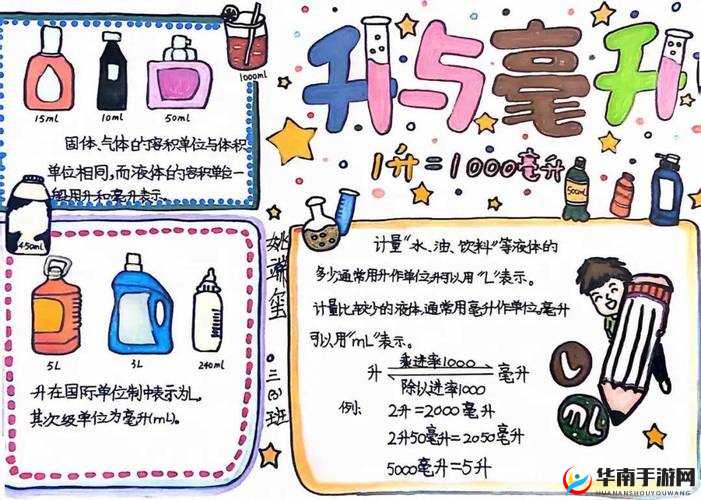 升与毫升
1升=1000毫升
1000ml
15mL
10mL
50mL
固体、气体的容积单位与体积
单位相同,而液体的容积单位一
般用升和毫升表示.
450mL
5L
3L
240ml
升在国际单位制中表示为L。
其次级单位为毫升(mL)。
姚端玺
三(3)班
500mL
计量“水、油、饮料”等液体的
多少通常用升作单位,升可以用“L”表示。
计量比较少的液体,通常用毫升作单位,毫升
可以用“mL”表示。
乘进率1000
升 毫升
除以进率1000
例: 2升=2000毫升
2升50毫升=2050毫升
5000毫升=5升
L
mL
华南手游网
HUANANSHOUYOUWANG